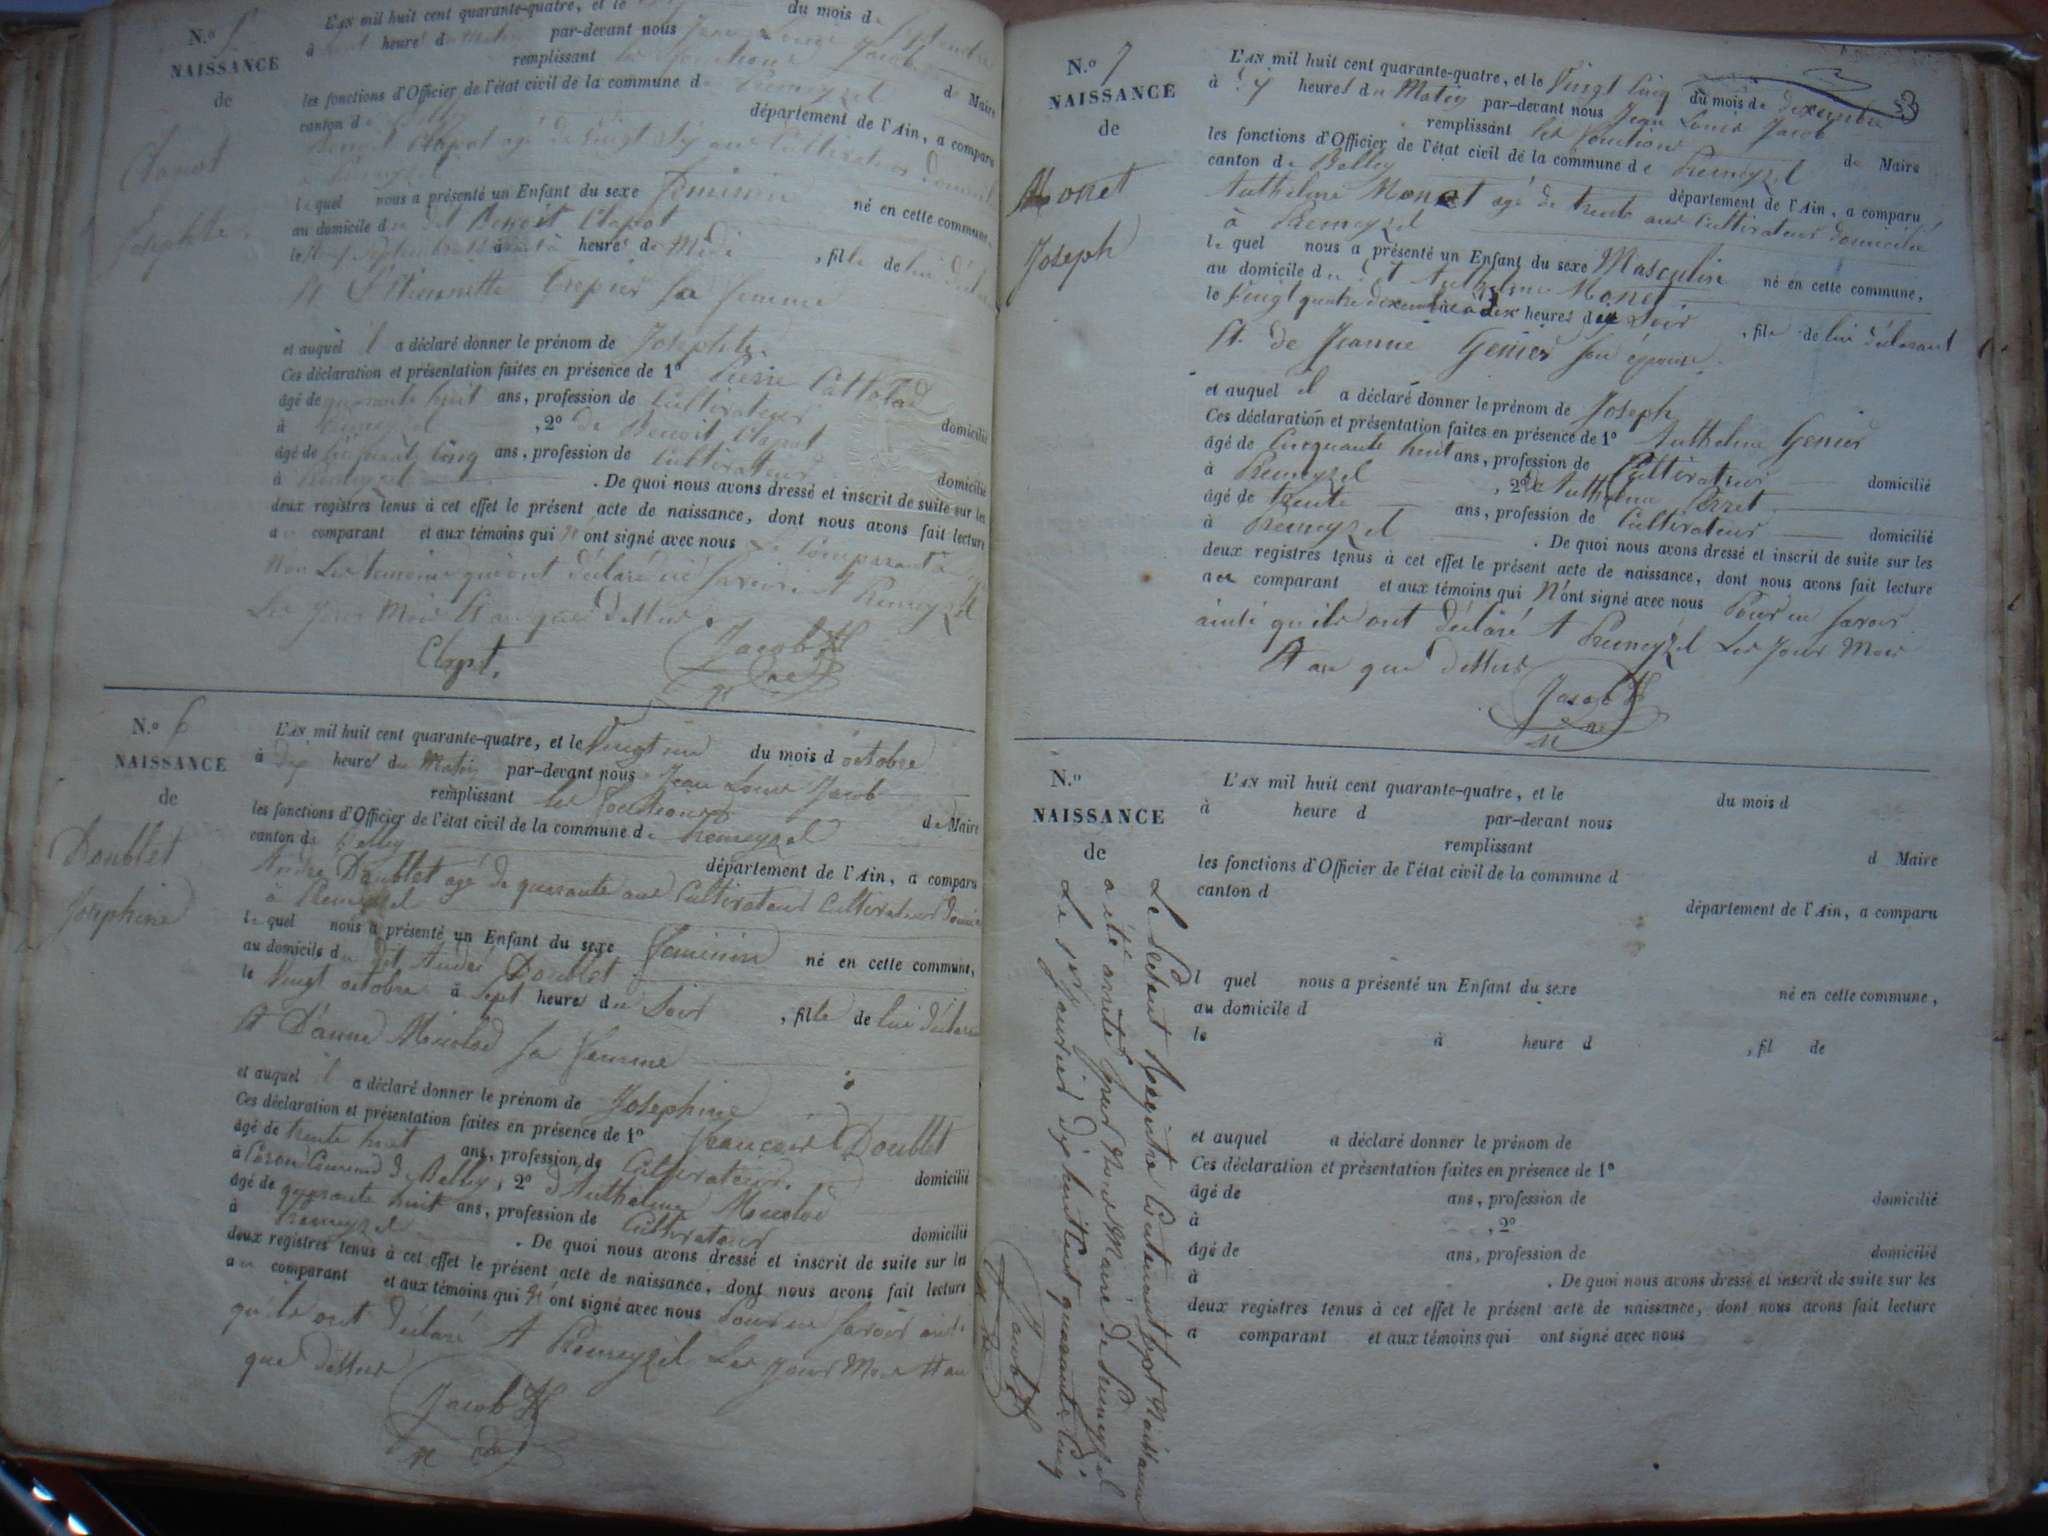 N.º 5
NAISSANCE
de
Clapot
Josephte
L'AN mil huit cent quarante-quatre, et le du mois de Septembre
à heures du Matin par-devant nous Jean Louis Jacob
remplissant les fonctions de Maire
les fonctions d'Officier de l'état civil de la commune de Premeyzel
canton de département de l'Ain, a comparu
Benoit Clapot agé de vingt ans Cultivateur
à Premeyzel
lequel nous a présenté un Enfant du sexe féminin né en cette commune,
au domicile du dit Benoit Clapot
le Septembre à heures de Midi, fille de lui
et Etiennette Trepier sa femme
et auquel il a déclaré donner le prénom de Josephte
Ces déclaration et présentation faites en présence de 1º Pierre
âgé de quarante huit ans, profession de Cultivateur domicilié
à Premeyzel, 2º de Benoit Clapot
âgé de cinq ans, profession de Cultivateur domicilié
à Premeyzel. De quoi nous avons dressé et inscrit de suite sur les
deux registres tenus à cet effet le présent acte de naissance, dont nous avons fait lecture
au comparant et aux témoins qui ont signé avec nous Le Comparant
Non Les temoins qui ont déclaré ne savoir. A Premeyzel
Les Jour Mois et an que dessus.
Clapt. Jacob
N.º 6
NAISSANCE
de
Doublet
Josephine
L'AN mil huit cent quarante-quatre, et le vingt un du mois d octobre
à Dix heures du Matin par-devant nous Jean Louis Jacob
remplissant les fonctions de Maire
les fonctions d'Officier de l'état civil de la commune de Premeyzel
canton de Belley département de l'Ain, a comparu
André Doublet agé de quarante ans Cultivateur Cultivateur
à Premeyzel
lequel nous a présenté un Enfant du sexe féminin né en cette commune,
au domicile du dit André Doublet
le vingt octobre à Sept heures du Soir, fille de lui
et D'anne sa femme
et auquel il a déclaré donner le prénom de Josephine
Ces déclaration et présentation faites en présence de 1º françois Doublet
âgé de trente huit ans, profession de Cultivateur domicilié
à de Belley, 2º d'Anthelme
âgé de quarante huit ans, profession de Cultivateur domicilié
à Premeyzel. De quoi nous avons dressé et inscrit de suite sur les
deux registres tenus à cet effet le présent acte de naissance, dont nous avons fait lecture
au comparant et aux témoins qui N'ont signé avec nous Pour ne Savoir
qu'ils ont déclaré A Premeyzel Les Jour Mois et an
que dessus
Jacob
N.º 7
NAISSANCE
de
Monet
Joseph
L'AN mil huit cent quarante-quatre, et le vingt cinq du mois de dexembre
à heures du Matin par-devant nous Jean Louis Jacob
remplissant les fonctions de Maire
les fonctions d'Officier de l'état civil de la commune de Premeyzel
canton de Belley département de l'Ain, a comparu
Anthelme Monet agé de trente ans Cultivateur domicilié
à Premeyzel
lequel nous a présenté un Enfant du sexe Masculin né en cette commune,
au domicile du dit Anthelme Monet
le vingt quatre dexembre à dix heures du Soir, fils de lui déclarant
et de Jeanne Genier son épouse.
et auquel il a déclaré donner le prénom de Joseph
Ces déclaration et présentation faites en présence de 1º Anthelme Genier
âgé de Cinquante huit ans, profession de Cultivateur domicilié
à Premeyzel, 2º d'Anthelme Perret
âgé de trente ans, profession de Cultivateur domicilié
à Premeyzel. De quoi nous avons dressé et inscrit de suite sur les
deux registres tenus à cet effet le présent acte de naissance, dont nous avons fait lecture
au comparant et aux témoins qui N'ont signé avec nous Pour ne savoir
ainsi qu'ils ont déclaré A Premeyzel Les Jour Mois
et an que dessus
Jacob
N.º
NAISSANCE
de
Le Présent Registre Contenant Sept Naissances
a été arrêté par Nous Maire de Premeyzel
Le 1er Janvier dix huit cent quarante cinq
Jacob
L'AN mil huit cent quarante-quatre, et le du mois d
à heure d par-devant nous
remplissant d Maire
les fonctions d'Officier de l'état civil de la commune d
canton d département de l'Ain, a comparu
l quel nous a présenté un Enfant du sexe né en cette commune,
au domicile d
le à heure d , fil de
et auquel a déclaré donner le prénom de
Ces déclaration et présentation faites en présence de 1º
âgé de ans, profession de domicilié
à , 2º
âgé de ans, profession de domicilié
à . De quoi nous avons dressé et inscrit de suite sur les
deux registres tenus à cet effet le présent acte de naissance, dont nous avons fait lecture
a comparant et aux témoins qui ont signé avec nous